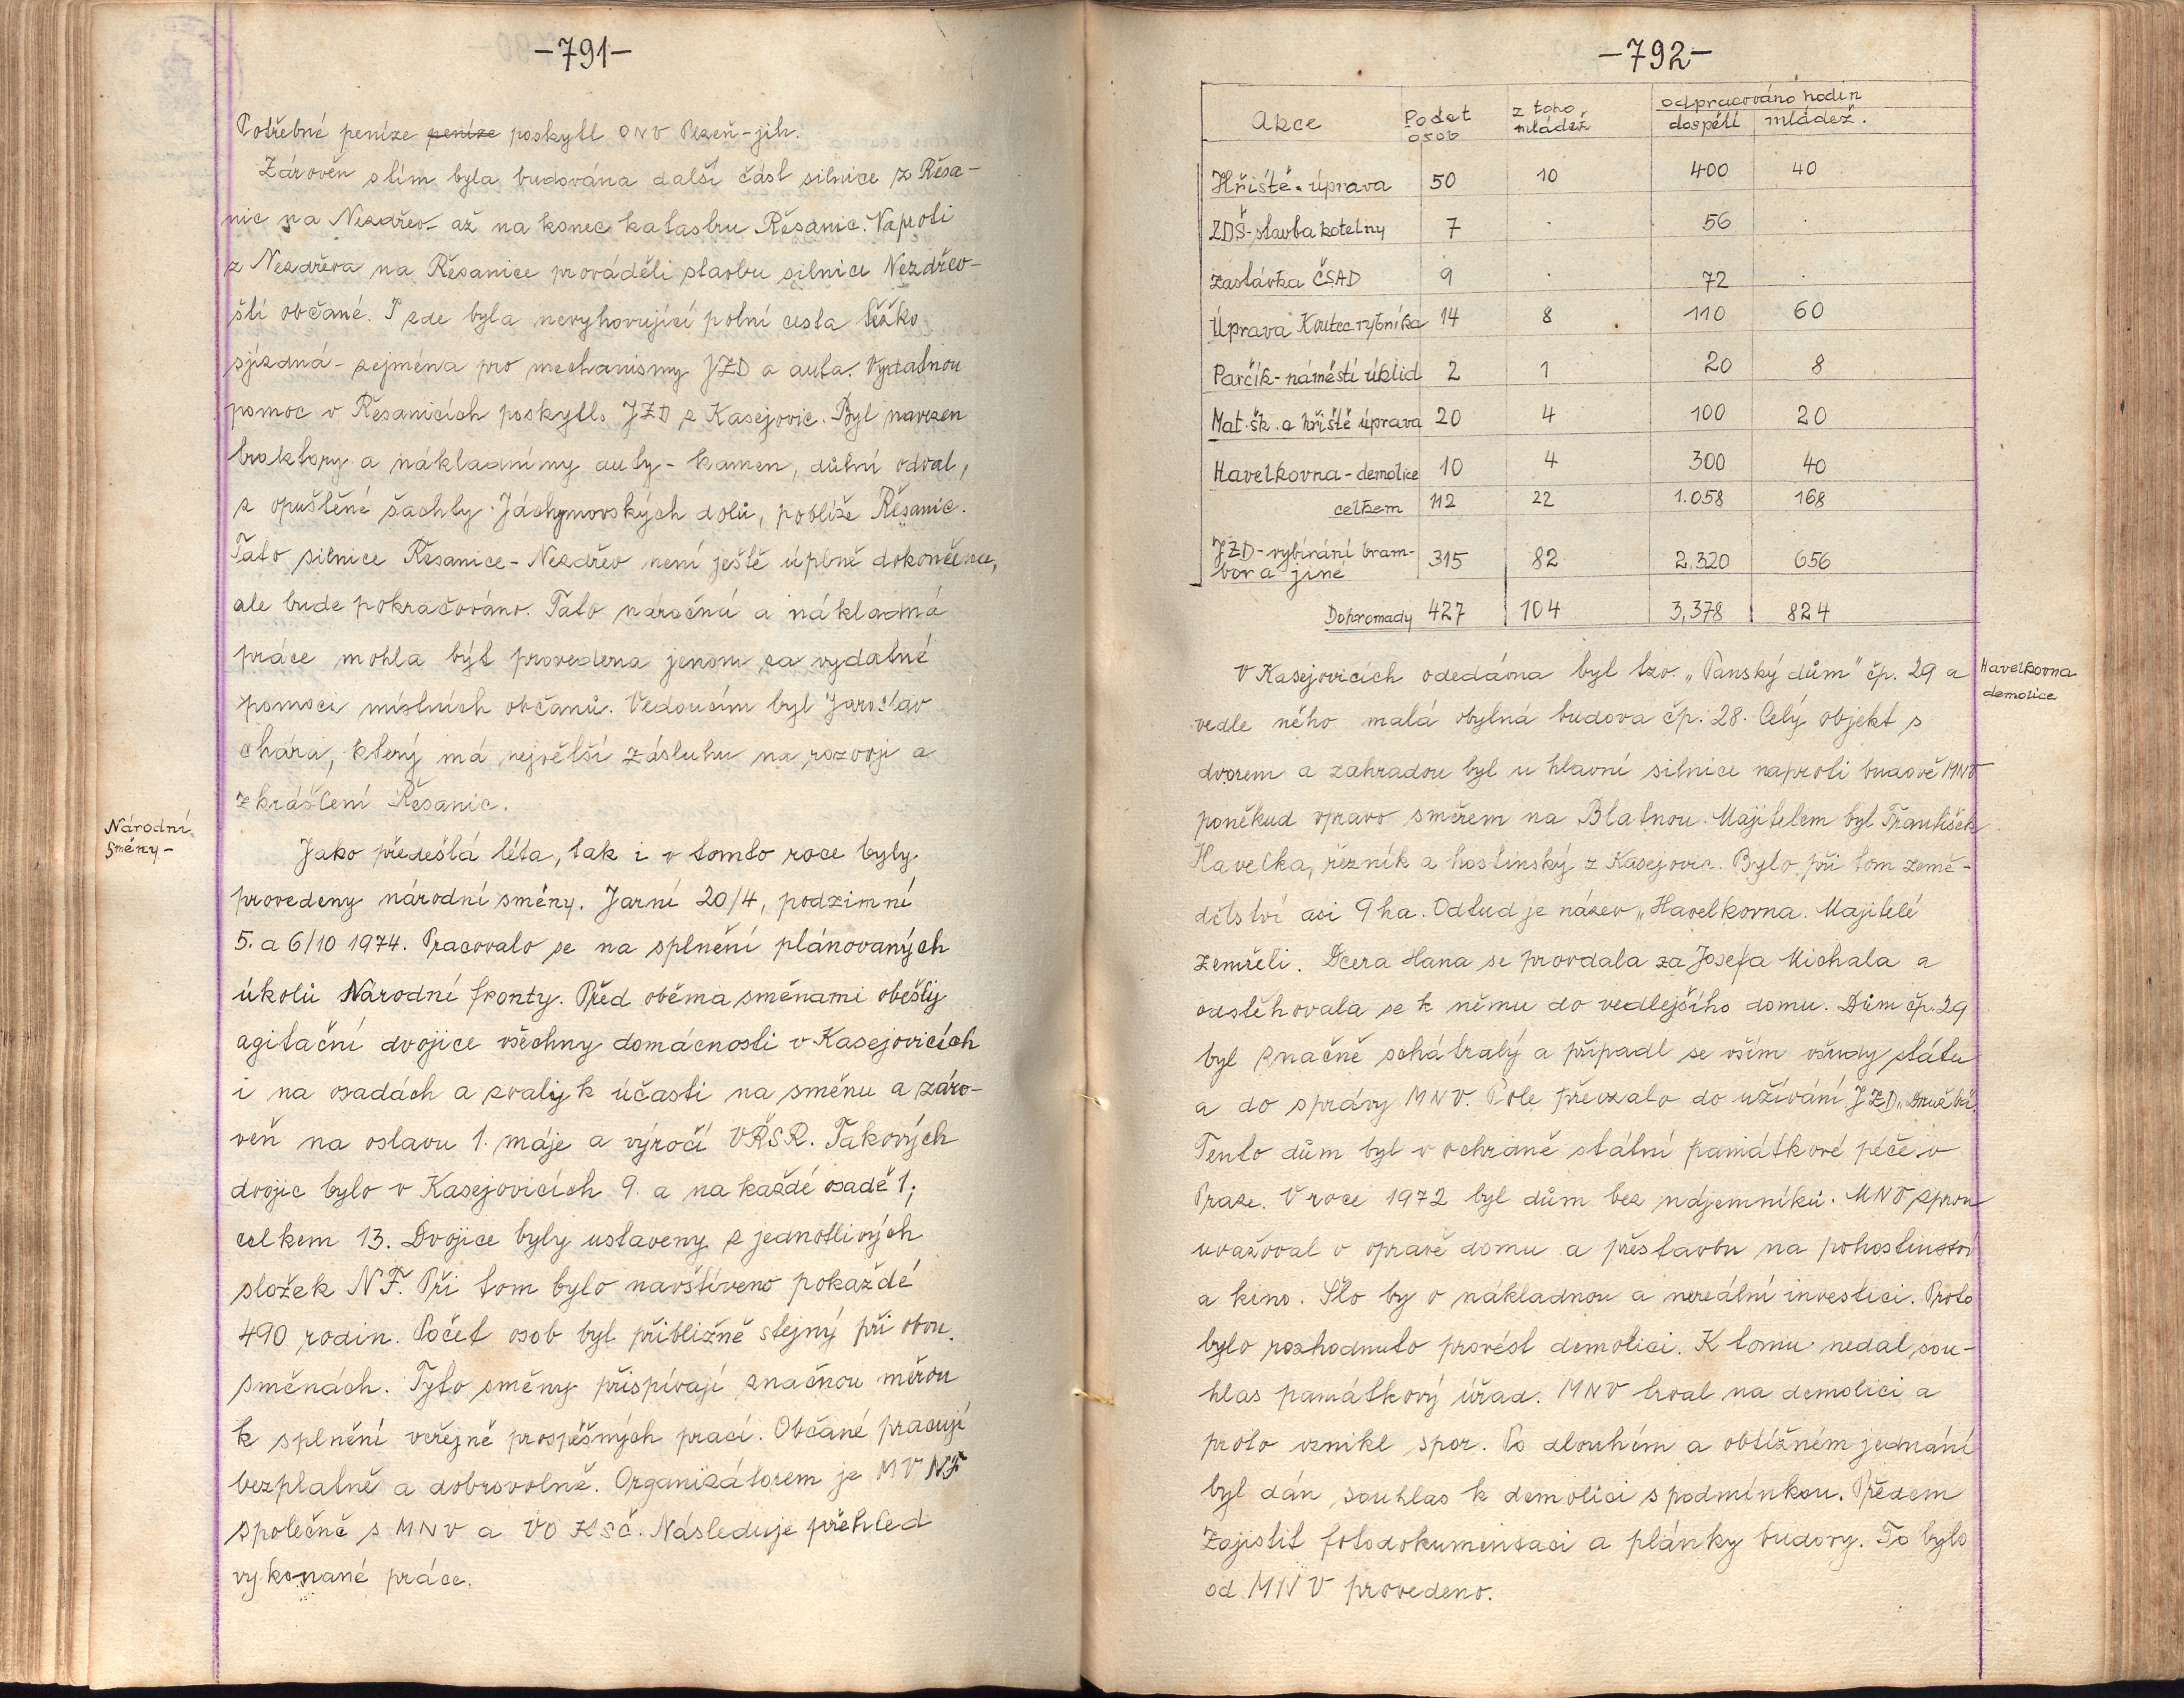 -791-
Potřebné peníze peníze poskytl ONV Plzeň-jih.
Zároveň s tím byla budována další část silnice z Řesa-
nic na Nezdřev až na konec katastru Řesanic. Naproti
z Nezdřeva na Řesanice prováděli stavbu silnice Nezdřev-
ští občané. I zde byla nevyhovující polní cesta těžko
sjízdná - zejména pro mechanismy JZD a auta. Vydatnou
pomoc v Řesanicích poskytlo JZD z Kasejovic. Byl navezen
traktory a nákladnímy auty - kamen, důlní odval,
z opuštěné šachty Jáchymovských dolů, poblíže Řesanic.
Tato silnice Řesanice - Nezdřev není ještě úplně dokončena,
ale bude pokračováno. Tato náročná a nákladná
práce mohla být provedena jenom za vydatné
pomoci místních občanů. Vedoucím byl Jaroslav
chára, který má největší zásluhu na rozvoji a
zkrášlení Řesanic.
Národní
směny-
Jako předešlá léta, tak i v tomto roce byly
provedeny národní směny. Jarní 20/4, podzimní
5. a 6/10 1974. Pracovalo se na splnění plánovaných
úkolů Národní fronty. Před oběma směnami obešly
agitační dvojice všechny domácnosti v Kasejovicích
i na osadách a zvaly k účasti na směnu a záro-
veň na oslavu 1. máje a výročí VŘSR. Takových
dvojic bylo v Kasejovicích 9 a na každé osadě 1;
celkem 13. Dvojice byly ustaveny z jednotlivých
složek NF. Při tom bylo navštíveno pokaždé
490 rodin. Počet osob byl přibližně stejný při obou
směnách. Tyto směny přispívají značnou měrou
k splnění veřejně prospěšných prací. Občané pracují
bezplatně a dobrovolně. Organizátorem je MV NF
společně s MNV a VO KSČ. Následuje přehled
vykonané práce.
-792-
Akce Počet osob z toho mládež odpracováno hodin dospělí mládež.
Hřiště - úprava 50 10 400 40
ZDŠ - stavba kotelny 7 . 56 .
Zastávka ČSAD 9 . 72 .
Úprava Koutec. rybníka 14 8 110 60
Parčík - náměstí úklid 2 1 20 8
Mat. šk. a hřiště úprava 20 4 100 20
Havelkovna - demolice 10 4 300 40
celkem 112 22 1.058 168
JZD - vybírání bram-
bor a jiné 315 82 2.320 656
Dohromady 427 104 3,378 824
Havelkovna
demolice
V Kasejovicích odedávna byl tzv. „Panský dům" čp. 29 a
vedle něho malá obytná budova čp. 28. Celý objekt s
dvorem a zahradou byl u hlavní silnice naproti budově MNV
poněkud vpravo směrem na Blatnou. Majitelem byl František
Havelka, řezník a hostinský z Kasejovic. Bylo při tom země-
dělství asi 9 ha. Odtud je název „Havelkovna. Majitelé
zemřeli. Dcera Hana se provdala za Josefa Michala a
odstěhovala se k němu do vedlejšího domu. Dům čp. 29
byl značně schátralý a připadl se vším všudy státu
a do správy MNV. Pole převzalo do užívání JZD
Tento dům byl v ochraně státní památkové péče v
Praze. V roce 1972 byl dům bez nájemníků. MNV zprvu
uvažoval o opravě domu a přestavbu na pohostinství
a kino. Šlo by o nákladnou a nereální investici. Proto
bylo rozhodnuto provést demolici. K tomu nedal sou-
hlas památkový úřad. MNV trval na demolici a
proto vznikl spor. Po dlouhém a obtížném jednání
byl dán souhlas k demolici s podmínkou. Předem
zajistit fotodokumentaci a plánky budovy. To bylo
od MNV provedeno.